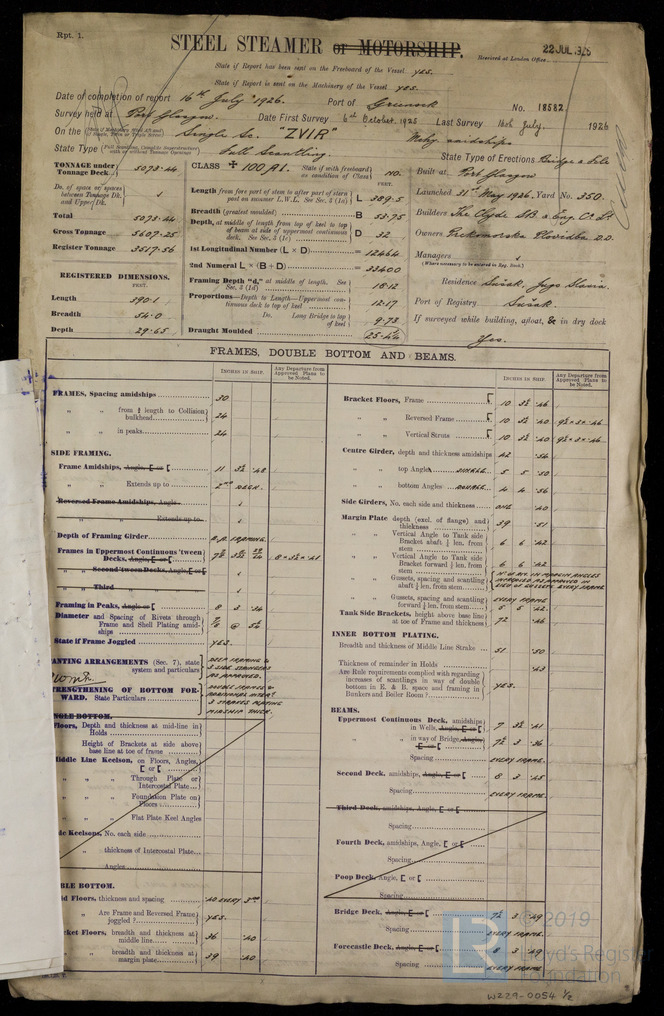 Rpt. 1.
STEEL STEAMER or MOTORSHIP.
22 JUL 1926
Received at London Office
State if Report has been sent on the Freeboard of the Vessel YES.
State if Report is sent on the Machinery of the Vessel YES.
Date of completion of report 16th July 1926. Port of Greenock No. 18582
Survey held at Port Glasgow. Date First Survey 6th October 1925 Last Survey 16th July. 1926
On the Single Sc. "ZVIR" Mchy. amidships
State Type Full Scantling. State Type of Erections Bridge & Fcle
TONNAGE under Tonnage Deck 5073.44
Do. of space or spaces between Tonnage Dk. and Upper Dk.
Total 5073.44
Gross Tonnage 5607.25
Register Tonnage 3517.56
REGISTERED DIMENSIONS.
FEET.
Length 390.1
Breadth 54.0
Depth 29.65
CLASS ✠ 100A1. State if with freeboard as condition of Class NO.
FEET.
Length from fore part of stem to after part of stern post on summer L.W.L. See Sec. 3 (1a) L 389.5
Breadth (greatest moulded) B 53.75
Depth, at middle of length from top of keel to top of beam at side of uppermost continuous deck. See Sec. 3 (1c) D 32
1st Longitudinal Number (L × D) = 12464
2nd Numeral L × (B + D) = 33400
Framing Depth "d," at middle of length. See Sec. 3 (1d) 18.12
Proportions—Depth to Length—Uppermost continuous deck to top of keel 12.17
Do. Long Bridge to top of keel 9.73
Draught Moulded 25.44
Built at Port Glasgow
Launched 31st May 1926. Yard No. 350.
Builders The Clyde S.B. & Eng. Co. Ld
Owners Prekomorska Plovidba D.D.
Managers
(Where necessary to be entered in Reg. Book.)
Residence Sušak, Jugo Slavia.
Port of Registry Sušak.
If surveyed while building, afloat, & in dry dock
Yes.
FRAMES, DOUBLE BOTTOM AND BEAMS.
INCHES IN SHIP.
Any Departure from Approved Plans to be Noted.
FRAMES, Spacing amidships 30
" " from ¾ length to Collision bulkhead 24
" " in peaks 24
SIDE FRAMING.
Frame Amidships, Angle, E or [ 11 3½ .48
" " Extends up to 2ND DECK.
Reversed Frame Amidships, Angle
" " Extends up to
Depth of Framing Girder
Frames in Uppermost Continuous 'tween Decks, Angle, E or [ 8 × 3½ × .41
" " Second 'tween Decks, Angle, E or [
" " Third
Framing in Peaks, Angle or [ 8 3 .44
Diameter and Spacing of Rivets through Frame and Shell Plating amidships ⅞ @ 5¼
State if Frame Joggled YES.
PANTING ARRANGEMENTS (Sec. 7), state system and particulars DEEP FRAMING & 3 SIDE STRINGERS AS APPROVED.
STRENGTHENING OF BOTTOM FORWARD. State Particulars
3 STRAKES PLATING MIDSHIP THICK.
SINGLE BOTTOM.
Floors, Depth and thickness at mid-line in Holds
Height of Brackets at side above base line at toe of frame
Middle Line Keelson, on Floors, Angles, E or [
" " Through Plate or Intercostal Plate
" " Foundation Plate on Floors
" " Flat Plate Keel Angles
Side Keelsons, No. each side
" thickness of Intercostal Plate
Angles
DOUBLE BOTTOM.
Solid Floors, thickness and spacing .40 EVERY 3RD
" Are Frame and Reversed Frame joggled? YES.
Bracket Floors, breadth and thickness at middle line 36 .40
" breadth and thickness at margin plate 39 .40
Bracket Floors, Frame 10 3½ .46
" " Reversed Frame 10 3½ .40 9½ × 3 × .46
" " Vertical Struts 10 3½ .40 9½ × 3 × .46
Centre Girder, depth and thickness amidships 42 .54
" " top Angles SINGLE 5 5 .50
" " bottom Angles DOUBLE 4 4 .56
Side Girders, No. each side and thickness ONE .40
Margin Plate depth (excl. of flange) and thickness 39 .51
" " Vertical Angle to Tank side Bracket abaft ¼ len. from stem 6 6 .42
" " Vertical Angle to Tank side Bracket forward ¼ len. from stem 6 6 .42
" " Gussets, spacing and scantling abaft ¼ len. from stem
" " Gussets, spacing and scantling forward ¼ len. from stem EVERY FRAME
Tank Side Brackets, height above base line at toe of Frame and thickness 72 .46
INNER BOTTOM PLATING.
Breadth and thickness of Middle Line Strake 51 .50
Thickness of remainder in Holds .43
Are Rule requirements complied with regarding increases of scantlings in way of double bottom in E. & B. space and framing in Bunkers and Boiler Room? YES.
BEAMS.
Uppermost Continuous Deck, amidships in Wells, Angle, E or [ 7 3½ .41
" " in way of Bridge, Angle, E or [ 7½ 3 .36
Spacing EVERY FRAME.
Second Deck, amidships, Angle, E or [ 8 3 .45
Spacing EVERY FRAME.
Third Deck, amidships, Angle, E or [
Spacing
Fourth Deck, amidships, Angle, E or [
Spacing
Poop Deck, Angle, E or [
Spacing
Bridge Deck, Angle, E or [ 7½ 3 .49
Spacing EVERY FRAME.
Forecastle Deck, Angle, E or [ 8 3 .49
Spacing EVERY FRAME
© 2019
Lloyd's Register
Foundation
W229-0054 ½